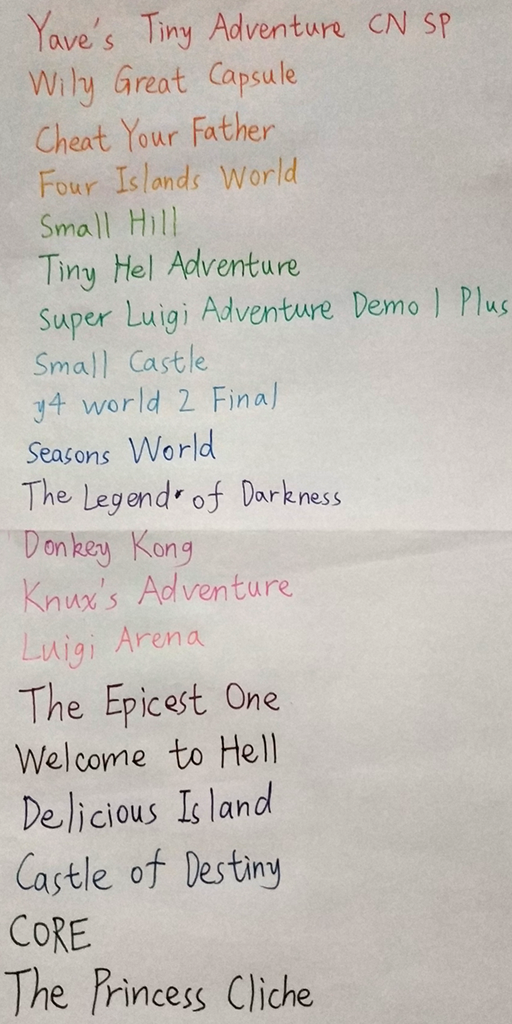 Yave's Tiny Adventure CN SP
Wily Great Capsule
Cheat Your Father
Four Islands World
Small Hill
Tiny Hel Adventure
Super Luigi Adventure Demo 1 Plus
Small Castle
y4 world 2 Final
Seasons World
The Legend of Darkness
Donkey Kong
Knux's Adventure
Luigi Arena
The Epicest One
Welcome to Hell
Delicious Island
Castle of Destiny
CORE
The Princess Cliche